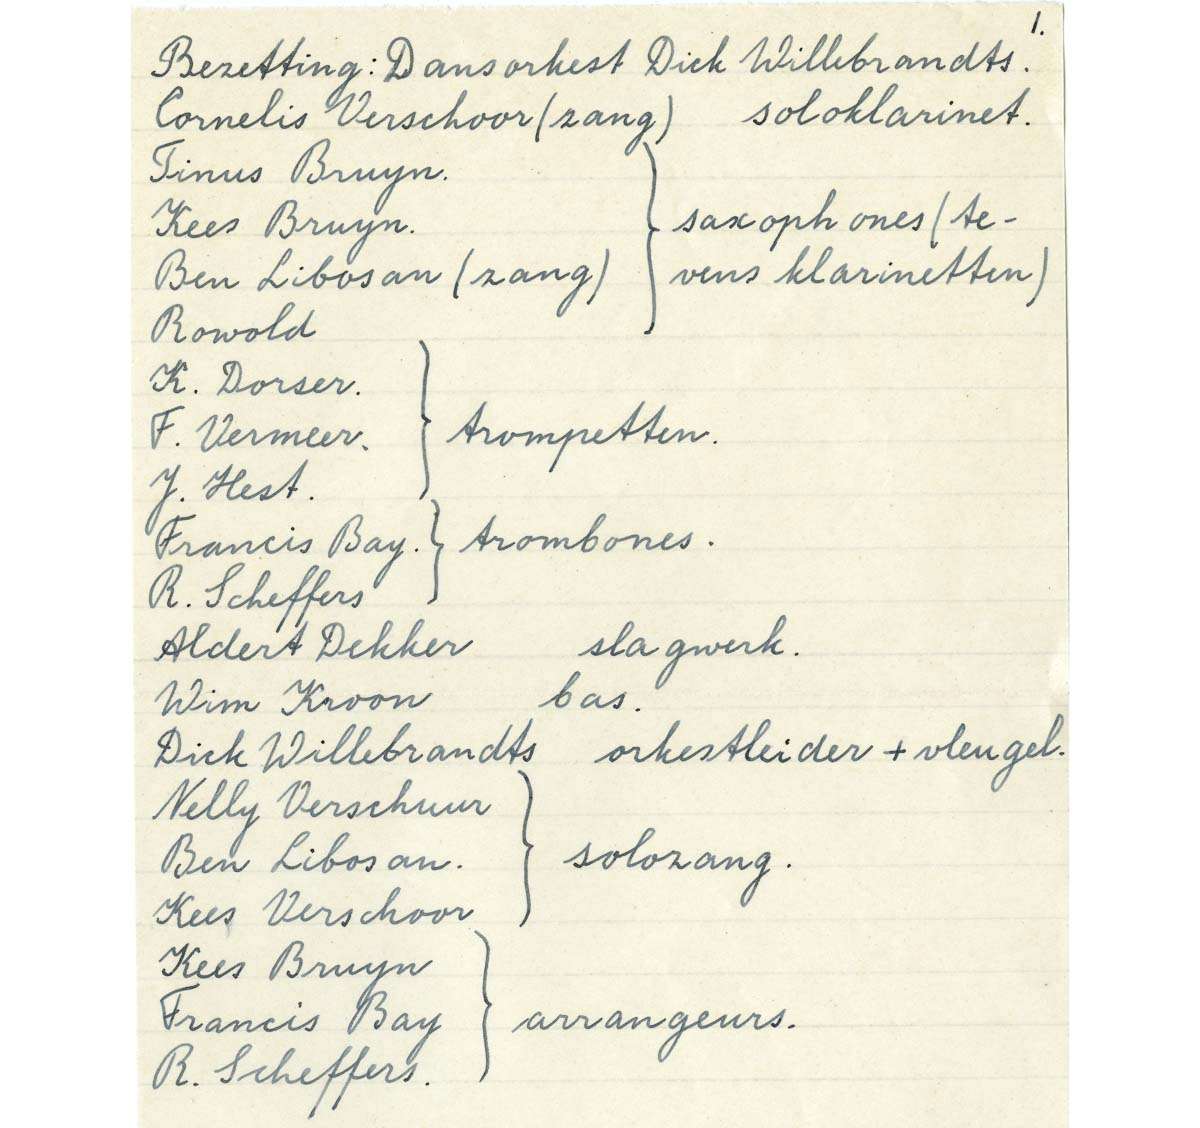 1.
Bezetting: Dansorkest Dick Willebrandts.
Cornelis Verschoor (zang) soloklarinet.
Tinus Bruyn.
Kees Bruyn. saxophones (te-
Ben Libosan (zang) vens klarinetten)
Rowold
K. Dorser.
F. Vermeer. trompetten.
J. Hest.
Francis Bay. trombones.
R. Scheffers
Aldert Dekker slagwerk.
Wim Kroon bas.
Dick Willebrandts orkestleider + vleugel.
Nelly Verschuur
Ben Libosan. solozang.
Kees Verschoor
Kees Bruyn
Francis Bay arrangeurs.
R. Scheffers.